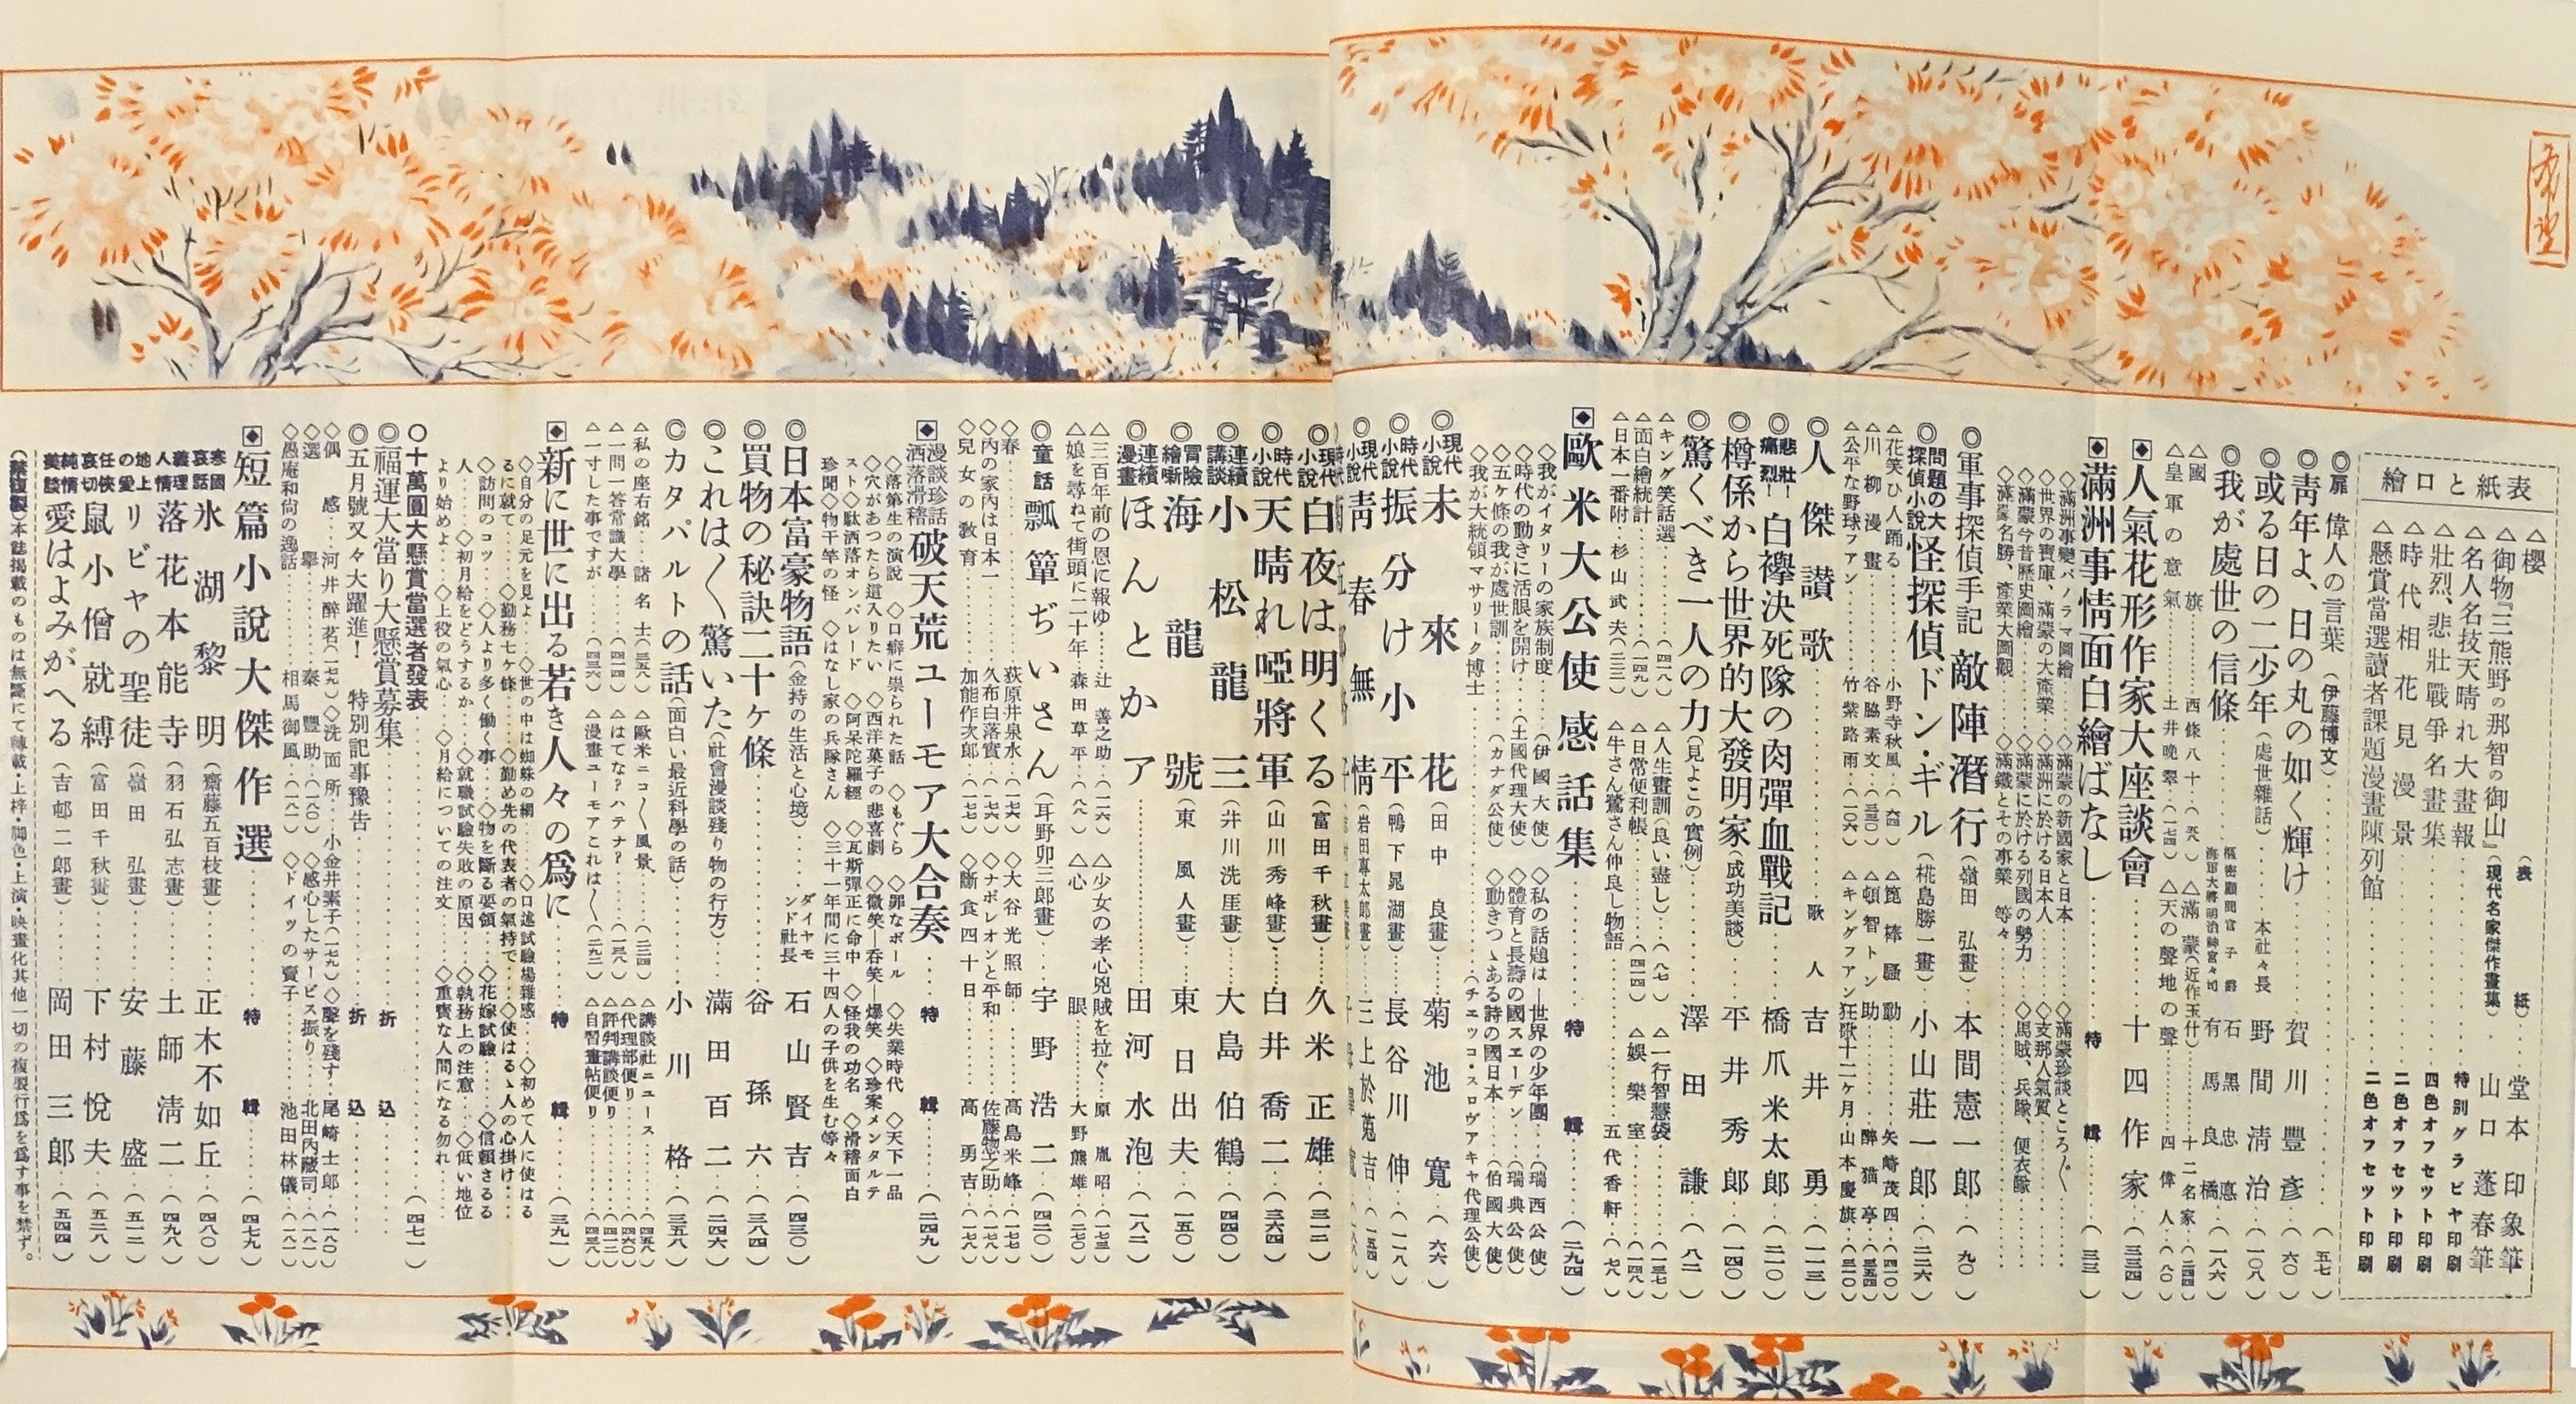 希望
表紙と口繪
△櫻……(表紙)……堂本印象筆
△御物『三熊野の那智の御山』(現代名家傑作畫集)……山口蓬春筆
△名人名技天晴れ大畫報……特別グラビヤ印刷
△壯烈、悲壯戰爭名畫集……四色オフセット印刷
△時代相花見漫景……二色オフセット印刷
△懸賞當選讀者課題漫畫陳列館……二色オフセット印刷
◎扉 偉人の言葉(伊藤博文)……(五七)
◎靑年よ、日の丸の如く輝け……賀川豐彥(六〇)
◎或る日の二少年(處世雜話)……本社々長 野間淸治(一〇八)
◎我が處世の信條……樞密顧問官 子爵 石黑忠悳 海軍大將明治神宮々司 有馬良橘(一八六)
△國旗……西條八十(五八) △滿蒙(近作玉什)……十二名家(二四四)
△皇軍の意氣……土井晚翠(一七四) △天の聲地の聲……四偉人(八〇)
◆人氣花形作家大座談會……十四作家(三三四)
◆滿洲事情面白繪ばなし……特輯……(三三)
◇滿洲事變パノラマ圖繪……◇滿蒙の新國家と日本……◇滿蒙珍談ところ〴〵
◇世界の寶庫、滿蒙の大產業……◇滿洲に於ける日本人……◇支那人氣質
◇滿蒙今昔歷史圖繪……◇滿蒙に於ける列國の勢力……◇馬賊、兵隊、便衣隊
◇滿蒙名勝、產業大圖觀……◇滿鐵とその事業 等々
◎軍事探偵手記 敵陣潛行(嶺田弘畫)……本間憲一郎(九〇)
◎問題の大探偵小說 怪探偵ドン・ギル(椛島勝一畫)……小山莊一郎(二二六)
△花笑ひ人踊る……小野寺秋風(六四) △箆棒騷動……矢崎茂四(四一〇)
△川柳漫畫……谷脇素文(三三〇) △頓智トン助……醉猫亭(三五四)
△公平な野球ファン……竹紫路雨(一〇六) △キングファン狂歌十二ヶ月……山本慶旗(三一〇)
◎人傑讃歌……歌人 吉井勇(一一三)
◎悲壯!痛烈! 白襷決死隊の肉彈血戰記……橋爪米太郎(二一〇)
◎樽係から世界的大發明家(成功美談)……平井秀郎(一四〇)
◎驚くべき一人の力(見よこの實例)……澤田謙(八二)
△キング笑話選……(四八) △人生畫訓(良い盡し)……(八七) △一行智慧袋……(三三七)
△面白繪統計……(一四九) △日常便利帳……(四一四) △娛樂室……(一四八)
△日本一番附……杉山武夫(三三二) △牛さん驚さん仲良し物語……五代香軒(七八)
◆歐米大公使感話集……特輯……(二九四)
◇我がイタリーの家族制度……(伊國大使) ◇私の話題は―世界の少年團……(瑞西公使)
◇時代の動きに活眼を開け……(土國代理大使) ◇體育と長壽の國スエーデン……(瑞典公使)
◇五ヶ條の我が處世訓……(カナダ公使) ◇動きつゝある詩の國日本……(伯國大使)
◇我が大統領マサリーク博士……(チェッコ・スロヴアキヤ代理公使)
◎現代小說 未來花(田中良畫)……菊池寬(六六)
◎時代小說 振分け小平(鴨下晁湖畫)……長谷川伸(一二八)
◎現代小說 靑春無情(岩田專太郎畫)……三上於菟吉(一五四)
◎現代小說 白夜は明くる(富田千秋畫)……久米正雄(三一二)
◎時代小說 天晴れ啞將軍(山川秀峰畫)……白井喬二(三六四)
◎連續講談 小松龍三(井川洗厓畫)……大島伯鶴(四四〇)
◎冒險繪噺 海龍號(東風人畫)……東日出夫(一五〇)
◎連續漫畫 ほんとかア……田河水泡(一八二)
△三百年前の恩に報ゆ……辻善之助(二六) △少女の孝心兇賊を拉ぐ……原胤昭(一七三)
△娘を尋ねて街頭に二十年……森田草平(八八) △心眼……大野熊雄(二七〇)
◎童話 瓢簞ぢいさん(耳野卯三郎畫)……宇野浩二(四二〇)
◇春……荻原井泉水(一七六) ◇大谷光照師……高島米峰(一七七)
◇內の家內は日本一……久布白落實(一七六) ◇ナポレオンと平和……佐藤惣之助(一七八)
◇兒女の敎育……加能作次郎(一七七) ◇斷食四十日……高勇吉(一七八)
◆漫談珍話洒落滑稽 破天荒ユーモア大合奏……特輯……(二四九)
◇落第生の演說 ◇口癖に祟られた話 ◇もぐら ◇罪なボール ◇失業時代 ◇天下一品
◇穴があつたら這入りたい ◇西洋菓子の悲喜劇 ◇微笑―呑笑―爆笑 ◇珍案メンタルテ
スト◇駄洒落オンパレード ◇阿呆陀羅經 ◇瓦斯彈正に命中 ◇怪我の功名 ◇滑稽面白
珍聞◇物干竿の怪 ◇はなし家の兵隊さん ◇三十一年間に三十四人の子供を生む等々
◎日本富豪物語(金持の生活と心境)……ダイヤモンド社長 石山賢吉(四三〇)
◎買物の秘訣二十ヶ條……谷孫六(三八四)
◎これは〳〵驚いた(社會漫談殘り物の行方)……滿田百二(二四六)
◎カタパルトの話(面白い最近科學の話)……小川格(三五八)
△私の座右銘…諸名士(三五八) △歐米ニコ〳〵風景……(三二四) △講談社ニュース……(四五八)
△一問一答常識大學……(四一四) △はてな?ハテナ?……(一三八) △代理部便り……(四六〇)
△評判講談便り……(四一二)
△一寸した事ですが……(四三六) △漫畫ユーモアこれは〳〵(二九二) △自習畫帖便り……(四三八)
◆新に世に出る若き人々の爲に……特輯……(三九一)
◇自分の足元を見よ……◇世の中は蜘蛛の網……◇口述試驗場雜感……◇初めて人に使はる
るに就て……◇勤務七ヶ條……◇勤め先の代表者の氣持で……◇使はるゝ人の心掛け……
◇訪問のコツ……◇人より多く働く事……◇物を斷る要領……◇花嫁試驗……◇信賴さるる
人……◇初月給をどうするか……◇就職試驗失敗の原因……◇執務上の注意……◇低い地位
より始めよ……◇上役の氣心……◇月給についての注文……◇重寶な人間になる勿れ……
〇十萬圓大懸賞當選者發表……(四七一)
◎福運大當り大懸賞募集……折込……
◎五月號又々大躍進! 特別記事豫告……折込……
◇偶感……河井醉茗(一七九) ◇洗面所……小金井素子(一七九) ◇聲を殘す……尾崎士郎(一八〇)
◇選擧……秦豐助(一八〇) ◇感心したサービス振り……北田內藏司(一八一)
◇愚庵和尙の逸話……相馬御風(一八一) ◇ドイツの賣子……池田林儀(一八一)
◆短篇小說大傑作選……特輯……(四七九)
寒國哀話 氷湖黎明(齋藤五百枝畫)……正木不如丘(四八〇)
義理人情 落花本能寺(羽石弘志畫)……土師淸二(四九八)
地上の愛 リビヤの聖徒(嶺田弘畫)……安藤盛(五一二)
任俠哀切 鼠小僧就縛(富田千秋畫)……下村悅夫(五二八)
純情美談 愛はよみがへる(吉邨二郎畫)……岡田三郎(五四四)
(禁複製)本誌揭載のものは無斷にて轉載・上梓・脚色・上演・映畫化其他一切の複製行爲を爲す事を禁ず。